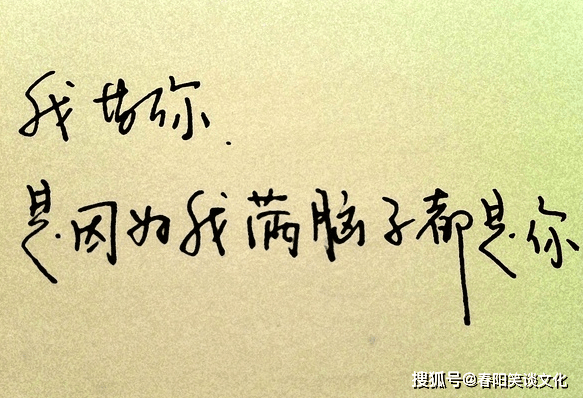 我你.
是因为我满脑子都是你
搜狐号@春阳笑谈文化